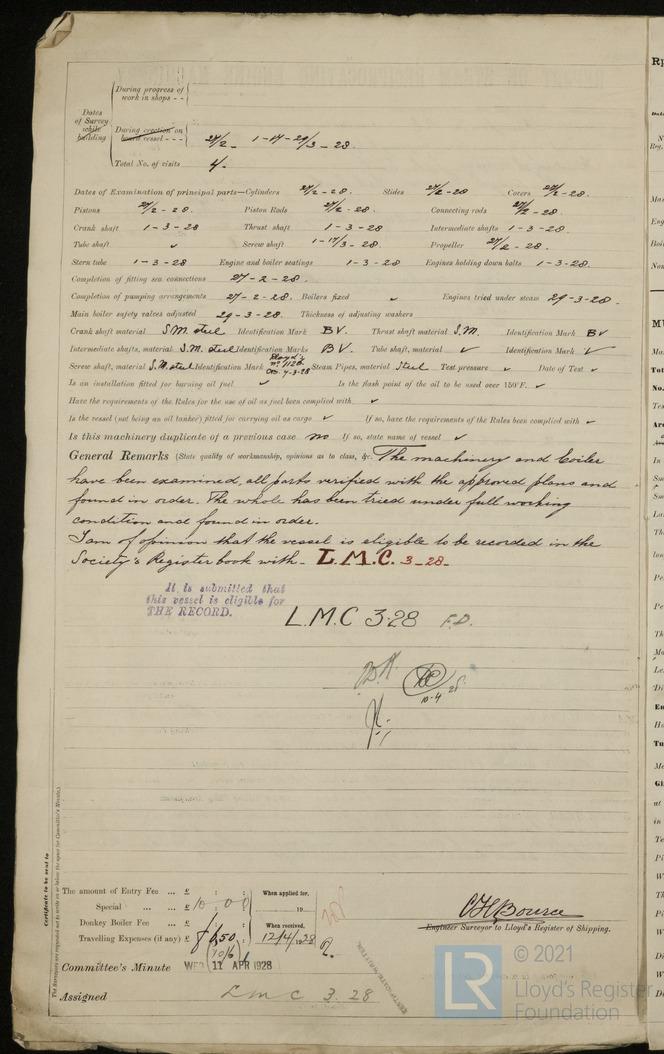 During progress of
work in shops - -
Dates
of Survey
while
building
During erection on
board vessel - - - 27/2 - 1-17-29/3-28
Total No. of visits 4/-
Dates of Examination of principal parts—Cylinders 27/2-28. Slides 27/2-28 Covers 27/2-28.
Pistons 27/2-28. Piston Rods 27/2-28. Connecting rods 27/2-28.
Crank shaft 1-3-28 Thrust shaft 1-3-28 Intermediate shafts 1-3-28
Tube shaft ✓ Screw shaft 1-17/3-28 Propeller 27/2-28.
Stern tube 1-3-28 Engine and boiler seatings 1-3-28 Engines holding down bolts 1-3-28.
Completion of fitting sea connections 27-2-28.
Completion of pumping arrangements 27-2-28. Boilers fixed ✓ Engines tried under steam 29-3-28.
Main boiler safety valves adjusted 29-3-28. Thickness of adjusting washers
Crank shaft material S.M. steel Identification Mark BV. Thrust shaft material S.M. Identification Mark BV
Intermediate shafts, material S.M. steel Identification Marks BV. Tube shaft, material ✓ Identification Mark ✓
Screw shaft, material S.M. steel Identification Mark Lloyd's 7-3-28 Steam Pipes, material Steel Test pressure ✓ Date of Test ✓
Is an installation fitted for burning oil fuel ✓ Is the flash point of the oil to be used over 150°F. ✓
Have the requirements of the Rules for the use of oil as fuel been complied with ✓
Is the vessel (not being an oil tanker) fitted for carrying oil as cargo ✓ If so, have the requirements of the Rules been complied with ✓
Is this machinery duplicate of a previous case no If so, state name of vessel ✓
General Remarks (State quality of workmanship, opinions as to class, &c. The machinery and boiler
have been examined, all parts verified with the approved plans and
found in order. The whole has been tried under full working
condition and found in order.
I am of opinion that the vessel is eligible to be recorded in the
Society's Register book with - L.M.C. 3-28.
It is submitted that
this vessel is eligible for
THE RECORD.
L.M.C 3.28 F.D.
10-4 28
Certificate to be sent to
The amount of Entry Fee ... £ : :
Special ... ... £ 10 : 0 0
Donkey Boiler Fee ... £
Travelling Expenses (if any) £
When applied for,
19
When received,
12/4/1928
C H Bource
Engineer Surveyor to Lloyd's Register of Shipping.
Committee's Minute WED 11 APR 1928
Assigned L M C 3.28
© 2021
Lloyd's Register
Foundation
LR